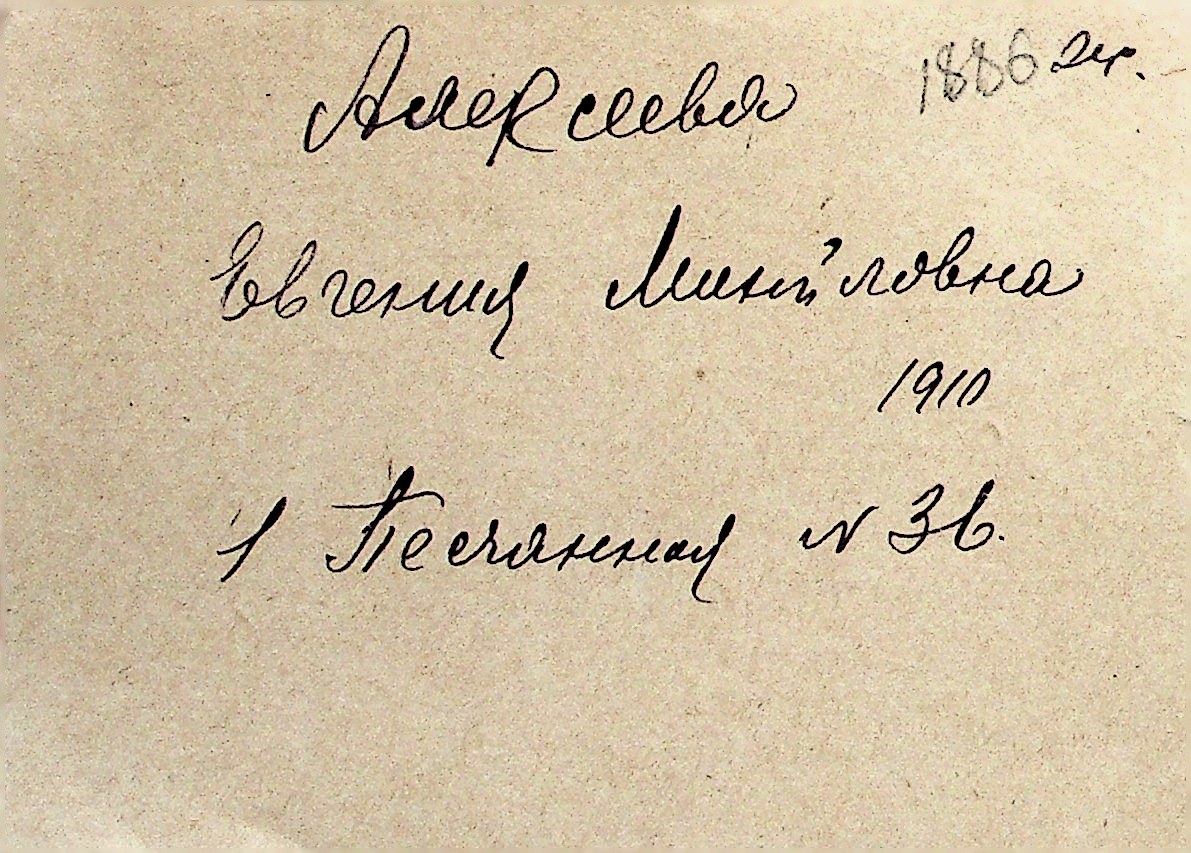 Алексеева 1886 гр.
Евгения Минайловна
1910
1 Песчанная N 36.